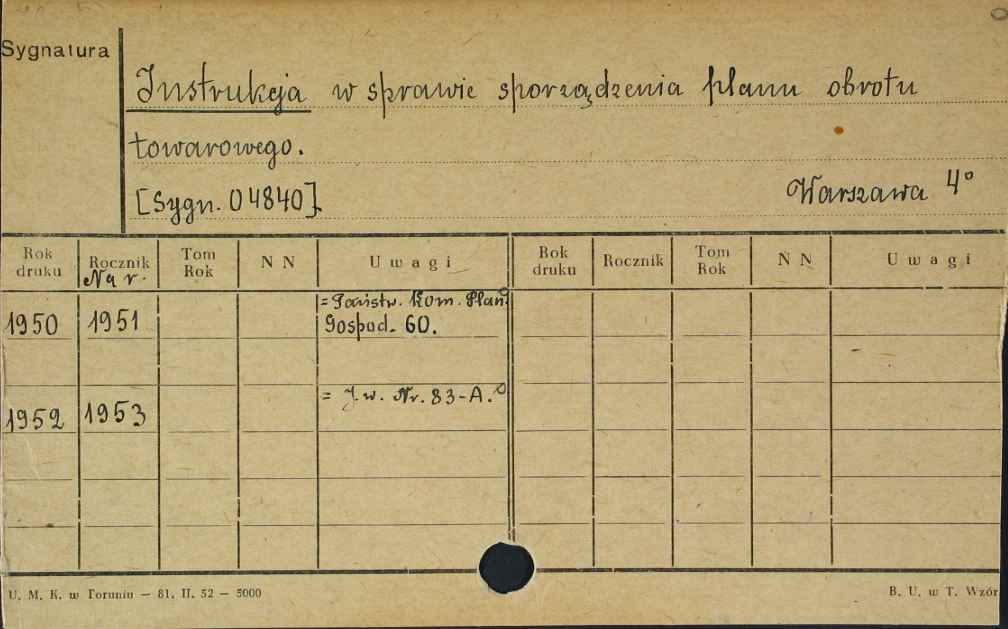 Sygnatura
Instrukcja w sprawie sporządzenia planu obrotu
towarowego.
[Sygn. 04840]. Warszawa 4°
Rok druku Rocznik Tom Rok N N Uwagi Rok druku Rocznik Tom Rok N N Uwagi
Na r.
1950 1951 = Państw. Kom. Plan.
Gospod. 60.
1952 1953 = J.w. Nr. 83-A.
U. M. K. w Toruniu — 81. II. 52 — 5000 B. U. w T. Wzór